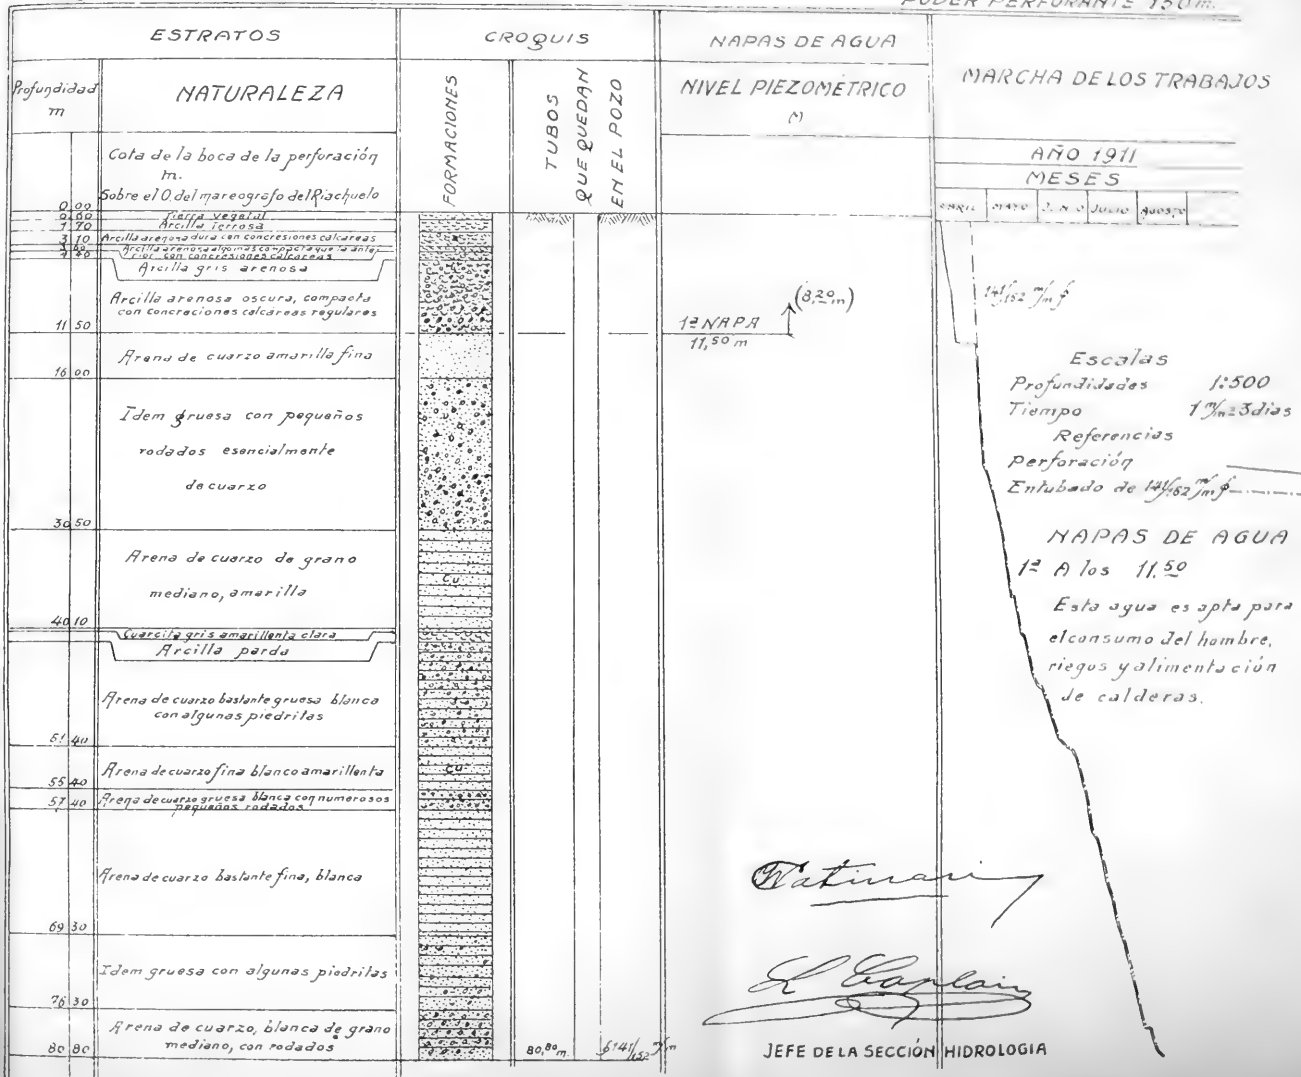 PODER PERFORANTE 150 m.
ESTRATOS
CROQUIS
NAPAS DE AGUA
MARCHA DE LOS TRABAJOS
Profundidad
m
NATURALEZA
FORMACIONES
TUBOS
QUE QUEDAN
EN EL POZO
NIVEL PIEZOMÉTRICO
M
AÑO 1911
MESES
ABRIL MAYO JUNIO JULIO AGOSTO
Cota de la boca de la perfuración
m.
Sobre el 0. del mareografo del Riachuelo
0 00
0 60 Tierra vegetal
1 70 Arcilla terrosa
3 10 Arcilla arenosa dura con concresiones calcareas
Arcilla arenosa algo mas compacta que la ante
rior con concresiones calcareas
Arcilla gris arenosa
Arcilla arenosa oscura, compacta
con concreciones calcareas regulares
11 50
1ª NAPA
11,50 m
(8,20 m)
141/152 m/m ϕ
Arena de cuarzo amarilla fina
16 00
Idem gruesa con pequeños
rodados esencialmente
de cuarzo
30 50
Arena de cuarzo de grano
mediano, amarilla
Cu
40 10
Cuarcita gris amarillenta clara
Arcilla parda
Arena de cuarzo bastante gruesa blanca
con algunas piedritas
51 40
Arena de cuarzo fina blanco amarillenta
Cu
55 40
Arena de cuarzo gruesa blanca con numerosos
pequeños rodados
57 40
Arena de cuarzo bastante fina, blanca
69 30
Idem gruesa con algunas piedritas
76 30
Arena de cuarzo, blanca de grano
mediano, con rodados
80 80
80,80 m.
141/152 m/m
Escalas
Profundidades 1:500
Tiempo 1 m/m = 3 dias
Referencias
Perforación
Entubado de 141/152 m/m ϕ
NAPAS DE AGUA
1ª A los 11.50
Esta agua es apta para
el consumo del hombre,
riegos y alimentación
de calderas.
L Caplain
JEFE DE LA SECCIÓN HIDROLOGIA